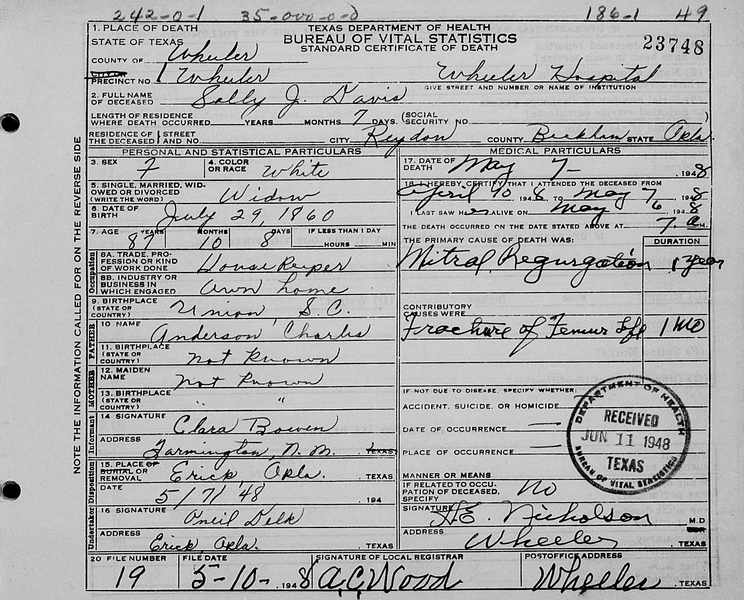 242-0-1 35-000-0-0 186-1 49
1. PLACE OF DEATH
STATE OF TEXAS
TEXAS DEPARTMENT OF HEALTH
BUREAU OF VITAL STATISTICS
STANDARD CERTIFICATE OF DEATH
23748
COUNTY OF Wheeler
PRECINCT NO. 1 Wheeler Wheeler Hospital
GIVE STREET AND NUMBER OR NAME OF INSTITUTION
2. FULL NAME OF DECEASED Sally J. Davis
LENGTH OF RESIDENCE WHERE DEATH OCCURRED YEARS MONTHS 7 DAYS. (SOCIAL SECURITY NO.
RESIDENCE OF THE DECEASED STREET AND NO. CITY Reydon COUNTY Beckham STATE Okla.
PERSONAL AND STATISTICAL PARTICULARS
3. SEX F 4. COLOR OR RACE White
5. SINGLE, MARRIED, WIDOWED OR DIVORCED (WRITE THE WORD) Widow
6. DATE OF BIRTH July 29, 1860
7. AGE YEARS MONTHS DAYS IF LESS THAN 1 DAY
87 10 8 HOURS MIN
8A. TRADE, PROFESSION OR KIND OF WORK DONE House Keeper
8B. INDUSTRY OR BUSINESS IN WHICH ENGAGED Own home
9. BIRTHPLACE (STATE OR COUNTRY) Union, S.C.
10. NAME Anderson, Charles
11. BIRTHPLACE (STATE OR COUNTRY) Not Known
12. MAIDEN NAME Not Known
13. BIRTHPLACE (STATE OR COUNTRY) " "
14 SIGNATURE Clara Bowen
ADDRESS Farmington, N.M. TEXAS
15. PLACE OF BURIAL OR REMOVAL Erick, Okla. TEXAS
DATE 5/7/48 194
16 SIGNATURE Oneil Delk
ADDRESS Erick Okla. TEXAS
MEDICAL PARTICULARS
17. DATE OF DEATH May 7- 1948
18. I HEREBY CERTIFY THAT I ATTENDED THE DECEASED FROM
April 1948 TO May 7 1948
I LAST SAW H ALIVE ON May 6 1948
THE DEATH OCCURRED ON THE DATE STATED ABOVE AT 7. a M.
THE PRIMARY CAUSE OF DEATH WAS: DURATION
Mitral Regurgation 1 year
CONTRIBUTORY CAUSES WERE
Fracture of Femur Lft 1 mo
IF NOT DUE TO DISEASE, SPECIFY WHETHER:
ACCIDENT, SUICIDE, OR HOMICIDE
DATE OF OCCURRENCE
PLACE OF OCCURRENCE
MANNER OR MEANS
IF RELATED TO OCCUPATION OF DECEASED, SPECIFY no
SIGNATURE H.E. Nicholson M.D
ADDRESS Wheeler TEXAS
DEPARTMENT OF HEALTH
RECEIVED
JUN 11 1948
TEXAS
BUREAU OF VITAL STATISTICS
20 FILE NUMBER FILE DATE SIGNATURE OF LOCAL REGISTRAR POSTOFFICE ADDRESS
19 5-10- 1948 A.C. Wood Wheeler TEXAS
NOTE THE INFORMATION CALLED FOR ON THE REVERSE SIDE
Occupation
FATHER
MOTHER
Informant
Disposition
Undertaker